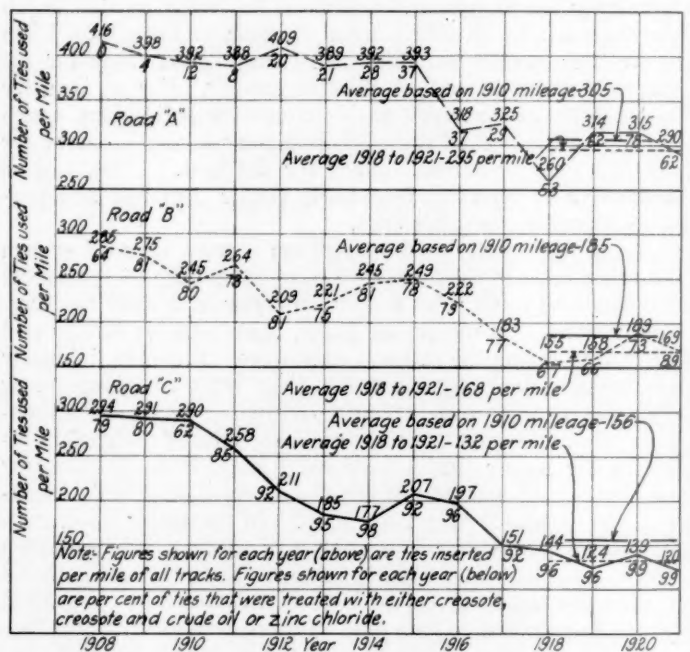 Number of Ties used
per Mile
400
350
300
250
416
0
398
4
392
12
388
8
409
20
389
21
392
28
393
37
318
37
325
29
260
53
314
62
315
78
290
62
Road "A"
Average based on 1910 mileage-305
Average 1918 to 1921-295 per mile
Number of Ties used
per Mile
300
250
200
150
Road "B"
64
275
81
245
80
264
78
209
81
221
75
245
81
249
78
222
79
183
77
155
158
66
189
73
169
89
Average based on 1910 mileage-185
Average 1918 to 1921-168 per mile
Number of Ties used
per Mile
300
250
200
150
Road "C"
294
79
291
80
290
62
258
86
211
92
185
95
177
98
207
92
197
96
151
92
144
96
124
96
139
99
120
99
Average based on 1910 mileage-156
Average 1918 to 1921-132 per mile
Note:- Figures shown for each year (above) are ties inserted
per mile of all tracks. Figures shown for each year (below)
are per cent of ties that were treated with either creosote,
creosote and crude oil or zinc chloride.
1908 1910 1912 Year 1914 1916 1918 1920